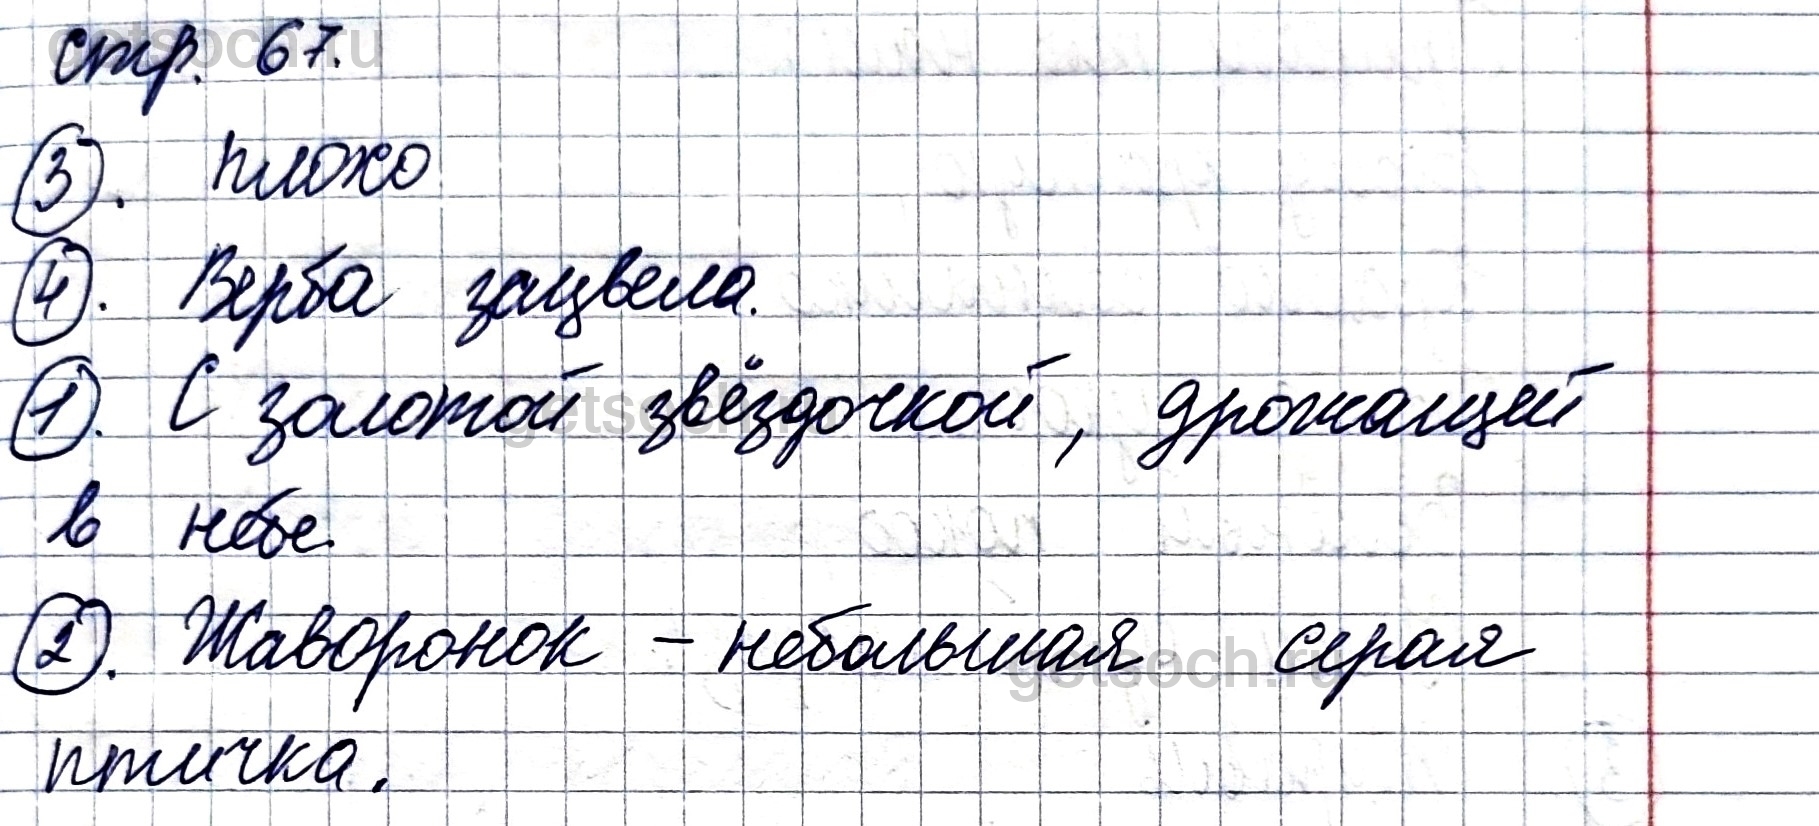 стр. 67.
3. плохо
4. Верба зацвела.
1. С золотой звёздочкой, дрожащей
в небе.
2. Жаворонок – небольшая серая
птичка.
getsoch.ru
getsoch.ru
getsoch.ru